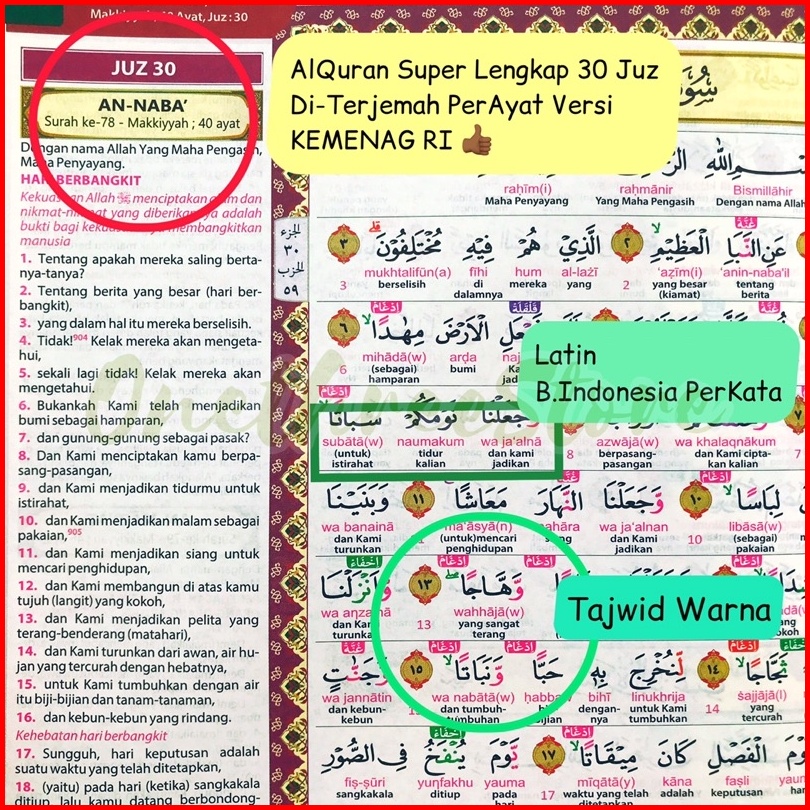 Makkiyyah, 40 Ayat, Juz : 30
JUZ 30
AN-NABA’
Surah ke-78 - Makkiyyah ; 40 ayat
Dengan nama Allah Yang Maha Pengasih,
Maha Penyayang.
HARI BERBANGKIT
Kekuasaan Allah ﷻ menciptakan alam dan
nikmat-nikmat yang diberikannya adalah
bukti bagi kekuasaannya membangkitkan
manusia
1. Tentang apakah mereka saling berta-
nya-tanya?
2. Tentang berita yang besar (hari ber-
bangkit),
3. yang dalam hal itu mereka berselisih.
4. Tidak!904 Kelak mereka akan mengeta-
hui,
5. sekali lagi tidak! Kelak mereka akan
mengetahui.
6. Bukankah Kami telah menjadikan
bumi sebagai hamparan,
7. dan gunung-gunung sebagai pasak?
8. Dan Kami menciptakan kamu berpa-
sang-pasangan,
9. dan Kami menjadikan tidurmu untuk
istirahat,
10. dan Kami menjadikan malam sebagai
pakaian,905
11. dan Kami menjadikan siang untuk
mencari penghidupan,
12. dan Kami membangun di atas kamu
tujuh (langit) yang kokoh,
13. dan Kami menjadikan pelita yang
terang-benderang (matahari),
14. dan Kami turunkan dari awan, air hu-
jan yang tercurah dengan hebatnya,
15. untuk Kami tumbuhkan dengan air
itu biji-bijian dan tanam-tanaman,
16. dan kebun-kebun yang rindang.
Kehebatan hari berbangkit
17. Sungguh, hari keputusan adalah
suatu waktu yang telah ditetapkan,
18. (yaitu) pada hari (ketika) sangkakala
ditiup, lalu kamu datang berbondong-
AlQuran Super Lengkap 30 Juz
Di-Terjemah PerAyat Versi
KEMENAG RI 👍🏾
الجزء
٣٠
الحزب
٥٩
rahīm(i) rahmānir Bismillāhir
Maha Penyayang Yang Maha Pengasih Dengan nama Allah
عَنِ النَّبَاِ الْعَظِيْمِۙ ٢ الَّذِيْ هُمْ فِيْهِ مُخْتَلِفُوْنَۗ ٣
3 mukhtalifūn(a) fīhi hum al-lażī 2 'aẓīmi(i) 'anin-naba'il
berselisih di dalamnya mereka yang yang besar (kiamat) tentang berita
الْاَرْضَ مِهٰدًاۙ ٦
6 mihādā(w) arḍa
(sebagai) hamparan bumi
Latin
B.Indonesia PerKata
وَّجَعَلْنَا نَوْمَكُمْ سُبَاتًاۙ
subātā(w) naumakum wa ja‘alnā 8 azwājā(w) wa khalaqnākum
(untuk) istirahat tidur kalian dan kami jadikan berpasang-pasangan dan Kami cipta-kan kalian
لِبَاسًاۙ ١٠ وَّجَعَلْنَا النَّهَارَ مَعَاشًاۖ ١١ وَبَنَيْنَا
wa banainā ma‘āsyā(n) wa ja‘alnan 10 libāsā(w)
dan Kami turunkan (untuk)mencari penghidupan dan Kami jadikan (sebagai) pakaian
وَّهَّاجًاۖ ١٣ وَّاَنْزَلْنَا
wa anzalnā 13 wahhājā(w)
dan Kami turunkan yang sangat terang
Tajwid Warna
ثَجَّاجًاۙ ١٤ لِّنُخْرِجَ بِهٖ حَبًّا وَّنَبَاتًاۙ ١٥ وَّجَنّٰتٍ
wa jannātin wa nabātā(w) ḥabbaw bihī linukhrija 14 ṡajjājā(l)
dan kebun-kebun dan tumbuh-tumbuhan dengan-nya untuk Kami tumbuhkan yang tercurah
الْفَصْلِ كَانَ مِيْقَاتًاۙ ١٧ يَّوْمَ يُنْفَخُ فِى الصُّوْرِ
fiṣ-ṣūri yunfakhu yauma 17 mīqātā(y) kāna faṣli yauma
sangkakala ditiup pada hari waktu yang telah ditetapkan adalah keputusan hari